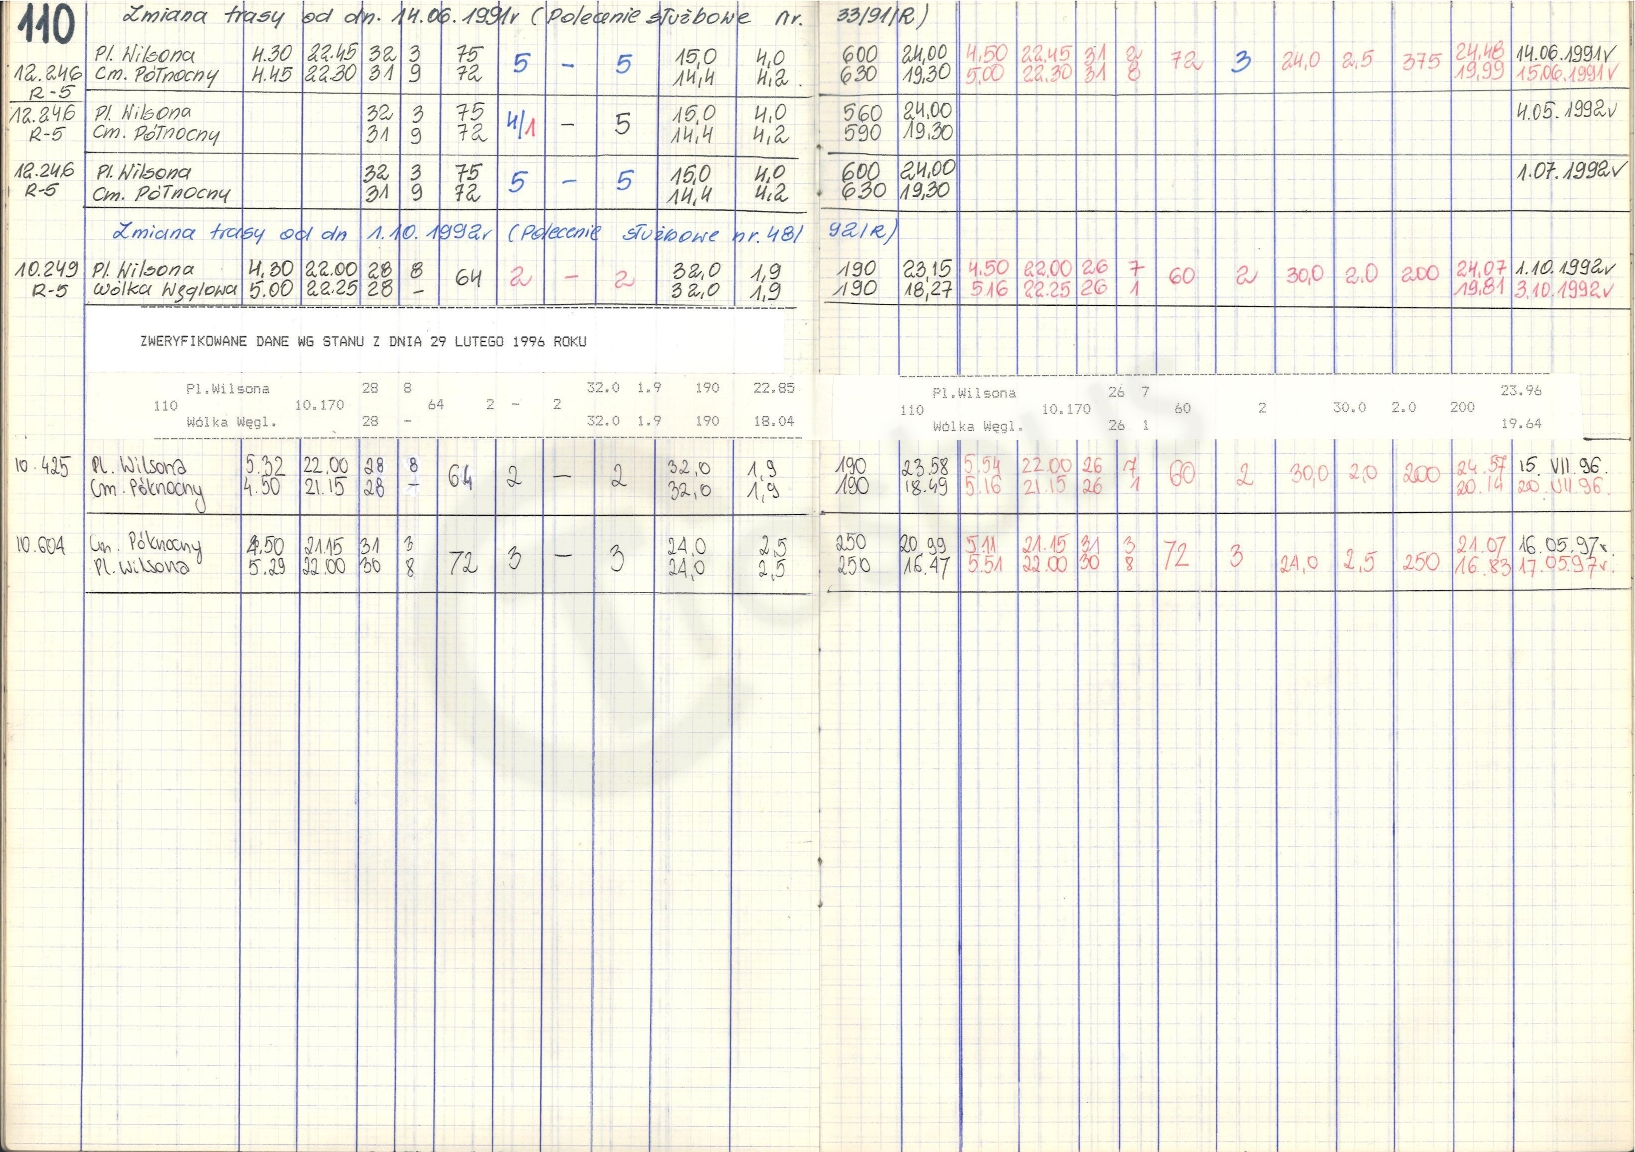 110 Zmiana trasy od dn. 14.06.1991r (Polecenie służbowe nr. 33/91/R)
Pl. Wilsona 4.30 22.45 32 3 75 5 – 5 15,0 4,0 600 24,00 4,50 22.45 31 2 72 3 24,0 2,5 375 24,48 14.06.1991r
12.246 Cm. Północny 4.45 22.30 31 9 72 14,4 4,2. 630 19,30 5,00 22.30 31 8 19,99 15.06.1991r
R-5
12.246 Pl. Wilsona 32 3 75 4/1 – 5 15,0 4,0 560 24,00 4.05.1992r
R-5 Cm. Północny 31 9 72 14,4 4,2 590 19,30
12.246 Pl. Wilsona 32 3 75 5 – 5 15,0 4,0 600 24,00 1.07.1992r
R-5 Cm. Północny 31 9 72 14,4 4,2 630 19,30
Zmiana trasy od dn 1.10.1992r (Polecenie służbowe nr. 48/92/R)
10.249 Pl. Wilsona 4,30 22.00 28 8 64 2 – 2 32,0 1,9 190 23,15 4.50 22.00 26 7 60 2 30,0 2.0 200 24,07 1.10.1992r
R-5 Wólka Węglowa 5.00 22.25 28 – 32,0 1,9 190 18,27 5.16 22.25 26 1 19,81 3.10.1992r
ZWERYFIKOWANE DANE WG STANU Z DNIA 29 LUTEGO 1996 ROKU
Pl.Wilsona 28 8 32.0 1.9 190 22.85 Pl.Wilsona 26 7 23.96
110 10.170 64 2 - 2 110 10.170 60 2 30.0 2.0 200
Wólka Węgl. 28 - 32.0 1.9 190 18.04 Wólka Węgl. 26 1 19.64
10.425 Pl. Wilsona 5.32 22.00 28 8 64 2 – 2 32,0 1,9 190 23.58 5.54 22.00 26 7 60 2 30,0 2,0 200 24.57 15. VII 96.
Cm. Północny 4.50 21.15 28 – 32,0 1,9 190 18.49 5.16 21.15 26 1 20.14 20. VII 96.
10.604 Cm. Północny 4.50 21.15 31 3 72 3 – 3 24,0 2,5 250 20.99 5.11 21.15 31 3 72 3 24,0 2,5 250 21.07 16.05.97r.
Pl. Wilsona 5.29 22.00 30 8 24,0 2,5 250 16.47 5.51 22.00 30 8 16.83 17.05.97r.